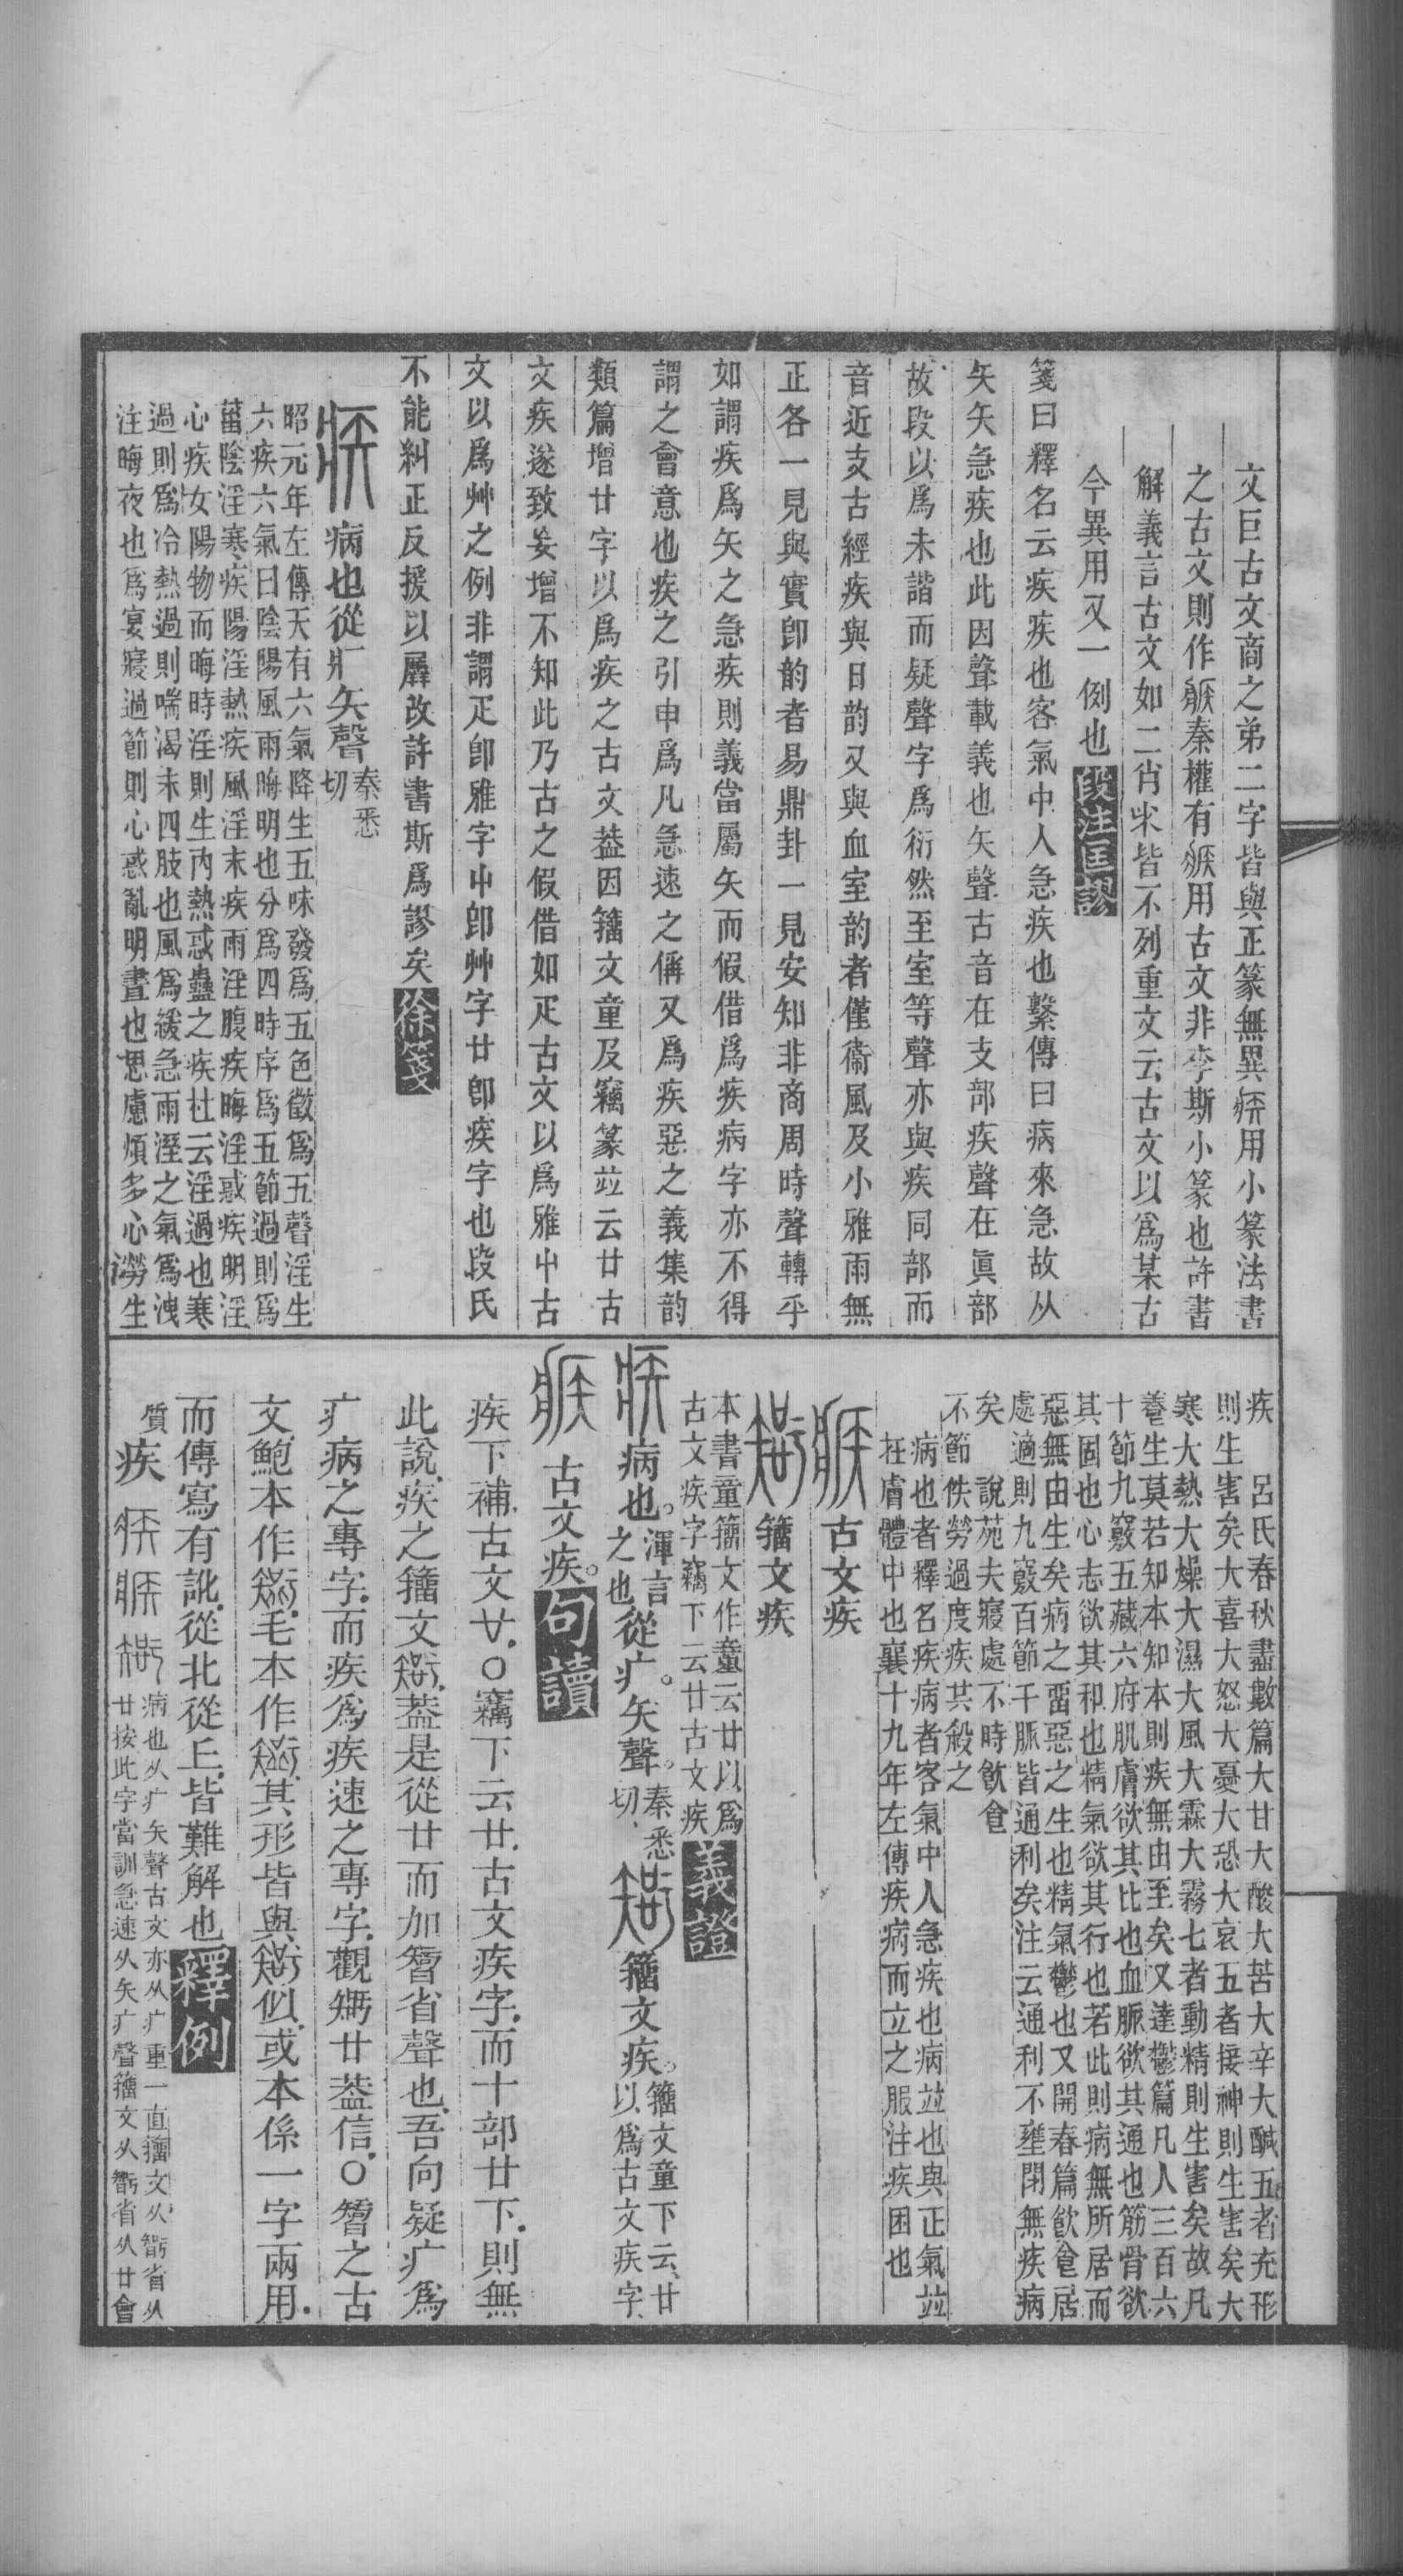 文巨古文商之弟二字皆與正篆無異用小篆法書
之古文則作秦權有用古文非李斯小篆也許書
解義言古文如二𣥂皆不列重文云古文以爲某古
今異用又一例也段注匡謬
箋曰釋名云疾疾也客氣中人急疾也繫傳曰病來急故从
矢矢急疾也此因聲載義也矢聲古音在支部疾聲在眞部
故段以爲未諧而疑聲字爲衍然至室等聲亦與疾同部而
音近支古經疾與日韵又與血室韵者僅衞風及小雅雨無
正各一見與實卽韵者易鼎卦一見安知非商周時聲轉乎
如謂疾爲矢之急疾則義當屬矢而假借爲疾病字亦不得
謂之會意也疾之引申爲凡急速之偁又爲疾惡之義集韵
類篇增廿字以爲疾之古文葢因籒文童及竊篆竝云廿古
文疾遂致妄增不知此乃古之假借如疋古文以爲雅屮古
文以爲艸之例非謂疋卽雅字屮卽艸字廿卽疾字也段氏
不能糾正反援以羼改許書斯爲謬矣徐箋
病也從疒矢聲秦悉切
昭元年左傳天有六氣降生五味發爲五色徵爲五聲淫生
六疾六氣曰陰陽風雨晦明也分爲四時序爲五節過則爲
菑陰淫寒疾陽淫熱疾風淫末疾雨淫腹疾晦淫惑疾明淫
心疾女陽物而晦時淫則生內熱惑蠱之疾杜云淫過也寒
過則爲冷熱過則喘渴末四肢也風爲緩急雨溼之氣爲洩
注晦夜也爲宴寢過節則心惑亂明晝也思慮煩多心勞生
疾　呂氏春秋盡數篇大甘大酸大苦大辛大鹹五者充形
則生害矣大喜大怒大憂大恐大哀五者接神則生害矣大
寒大熱大燥大濕大風大霖大霧七者動精則生害矣故凡
養生莫若知本知本則疾無由至矣又達鬱篇凡人三百六
十節九竅五藏六府肌膚欲其比也血脈欲其通也筋骨欲
其固也心志欲其和也精氣欲其行也若此則病無所居而
惡無由生矣病之畱惡之生也精氣鬱也又開春篇飮食居
處適則九竅百節千脈皆通利矣注云通利不壅閉無疾病
矣　說苑夫寢處不時飮食
不節佚勞過度疾共殺之
病也者釋名疾病者客氣中人急疾也病竝也與正氣竝
在膚體中也襄十九年左傳疾病而立之服注疾困也
古文疾
籒文疾
本書童籒文作童云廿以爲
古文疾字竊下云廿古文疾義證
病也。渾言之也從疒。矢聲。秦悉切、籒文疾。籒文童下云、廿以爲古文疾字、
古文疾。句讀
疾下補古文廿。○竊下云廿、古文疾字、而十部廿下、則無
此說、疾之籒文、葢是從廿而加省聲也、吾向疑疒爲
疒病之專字、而疾爲疾速之專字、觀廿葢信。○之古
文、鮑本作、毛本作、其形皆與似、或本係一字兩用、
而傳寫有訛、從北從丘、皆難解也、釋例
質疾病也从疒矢聲古文亦从疒重一直籒文从省从
廿按此字當訓急速从矢疒聲籒文从省从廿會